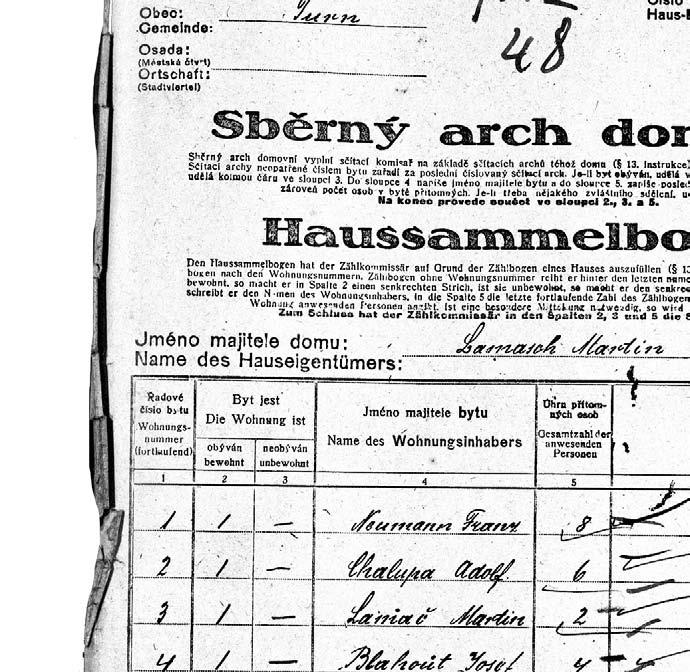 Obec:
Gemeinde:
Turn
48
Osada:
(Městská čtvrť)
Ortschaft:
(Stadtviertel)
Číslo
Haus-
Sběrný arch do
Sběrný arch domovní vyplní sčítací komisař na základě sčítacích archů téhož domu (§ 13. Instrukce
Sčítací archy neopatřené číslem bytu zařadí za poslední číslovaný sčítací arch. Je-li byt obýván, udělá
udělá kolmou čáru ve sloupci 3. Do sloupce 4 napíše jméno majitele bytu a do sloupce 5. zapíše posled
zároveň počet osob v bytě přítomných. Je-li třeba nějakého zvláštního sdělení, u
Na konec provede součet ve sloupci 2., 3. a 5.
Haussammelbo
Den Haussammelbogen hat der Zählkommissär auf Grund der Zählbogen eines Hauses auszufüllen (§ 13
bogen nach den Wohnungsnummern. Zählbogen ohne Wohnungsnummer reiht er hinter den letzten
bewohnt, so macht er in Spalte 2 einen senkrechten Strich, ist sie unbewohnt, so macht er den senkrec
schreibt er den Namen des Wohnungsinhabers, in die Spalte 5 die letzte fortlaufende Zahl des Zählbogen
Wohnung anwesenden Personen angibt. Ist eine besondere Mitteilung notwendig, so wird
Zum Schluss hat der Zählkommissär in den Spalten 2, 3 und 5 die S
Jméno majitele domu:
Name des Hauseigentümers:
Lamasch Martin
Řadové
číslo bytu
Wohnungs-
nummer
(fortlaufend)
Byt jest
Die Wohnung ist
obýván
bewohnt
neobýván
unbewohnt
Jméno majitele bytu
Name des Wohnungsinhabers
Úhrn přítom-
ných osob
Gesamtzahl der
anwesenden
Personen
1 2 3 4 5
1 1 — Neumann Franz 8
2 1 — Chalupa Adolf. 6
3 1 — Martin 2
4 1 — Blahout Josef 4